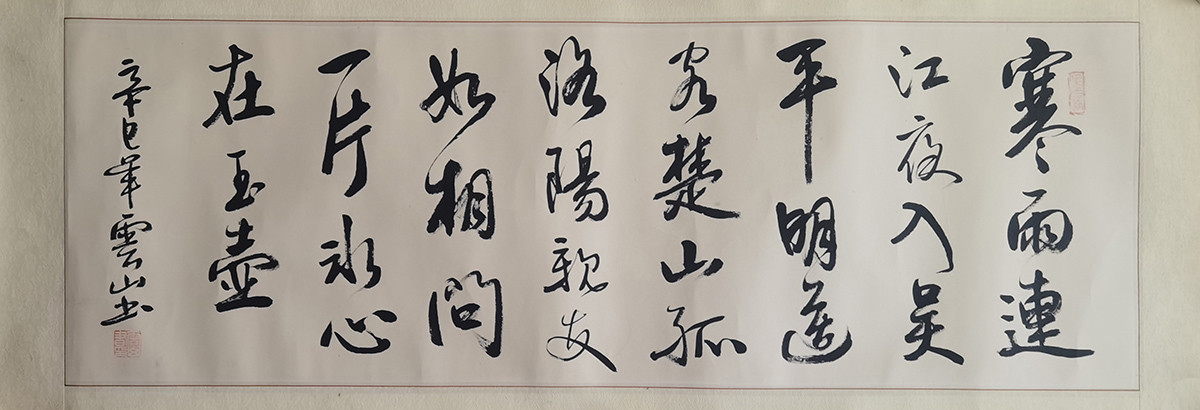 寒雨連
江夜入吳
平明送
客楚山孤
洛陽親友
如相問
一片冰心
在玉壺
辛巳年雲山书